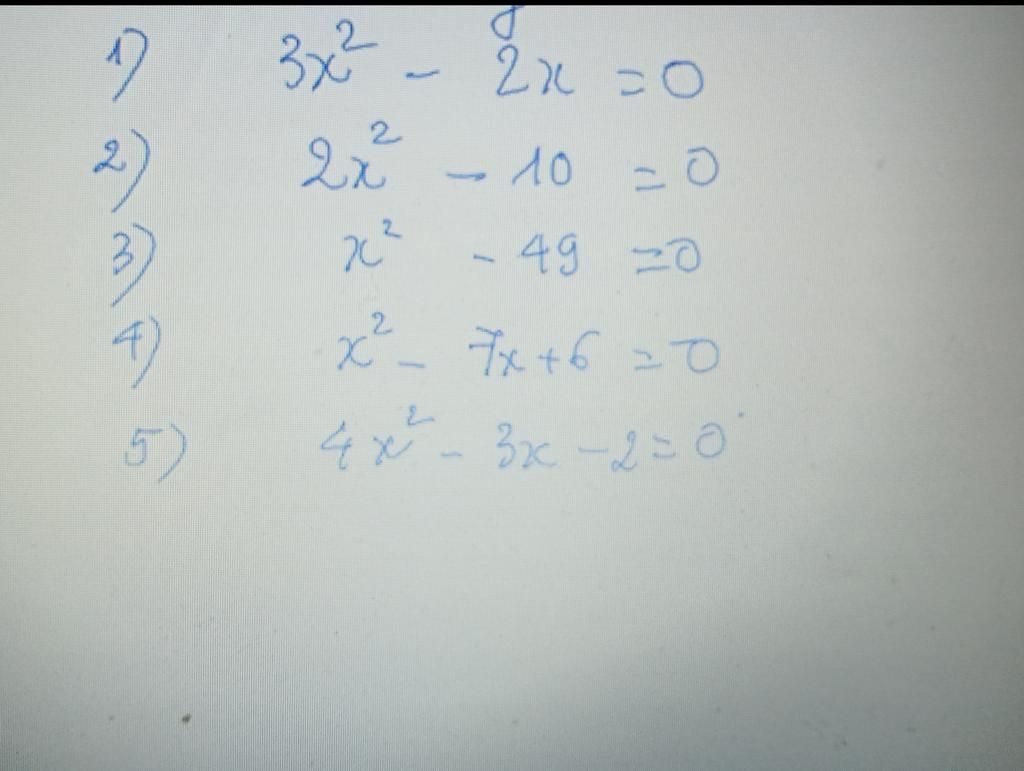 1) 3x² - 2x = 0
2) 2x² - 10 = 0
3) x² - 49 = 0
4) x² - 7x + 6 = 0
5) 4x² - 3x - 2 = 0